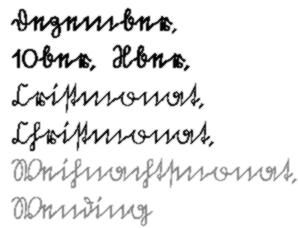 Dezember,
10ber, Xber,
Cristmonat,
Christmonat,
Weihnachtsmonat,
Wending